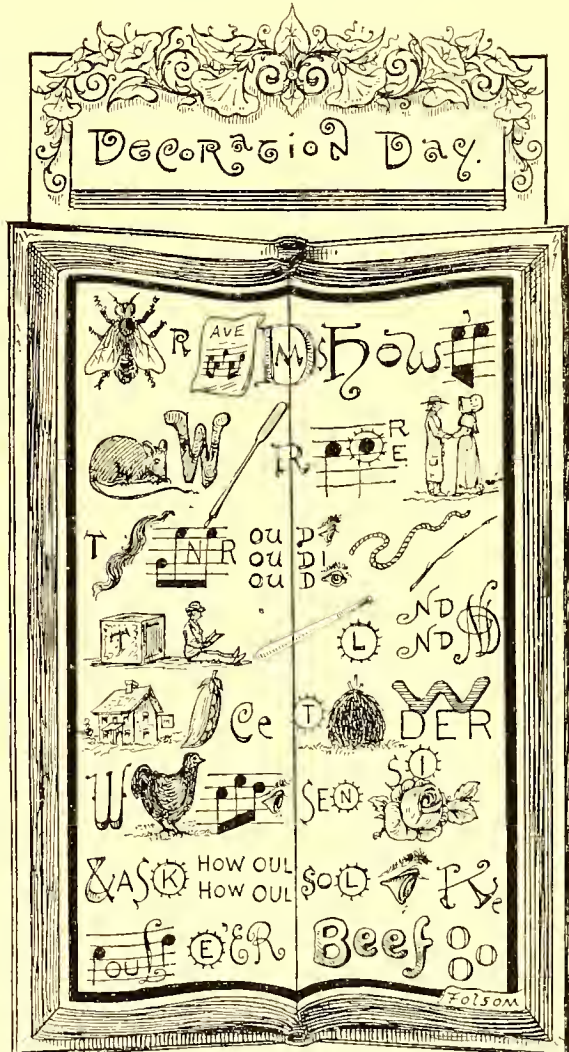 Decoration Day.
R AVE DMs how
W R RE
T N R OU D
OU DI
OU D
T L ND
ND
Ce T W DER
W SEN SI
& ASK HOW OUL
HOW OUL SOL Ke
E'ER Beef
FOLSOM